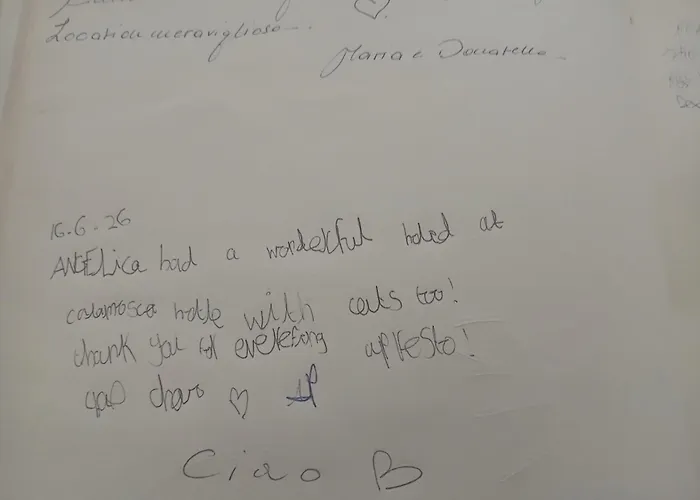 Location meravigliosa...
Maria e Donatella..
16.6.26
ANGELica had a wonderful holed at
calamosca hotle with cats too!
thank you for everefong apresto!
ciao
Ciao B